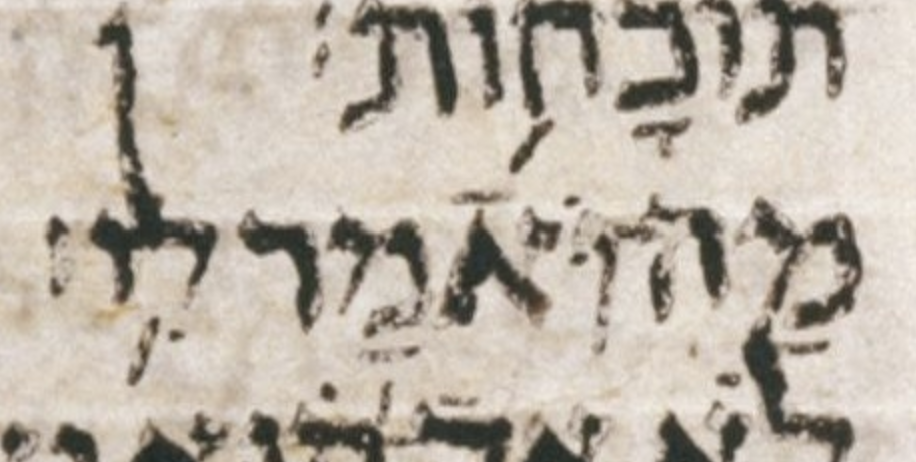 תוֹכָחֽוֹת׃
מַה־יֹּאמַר לִֽי׃